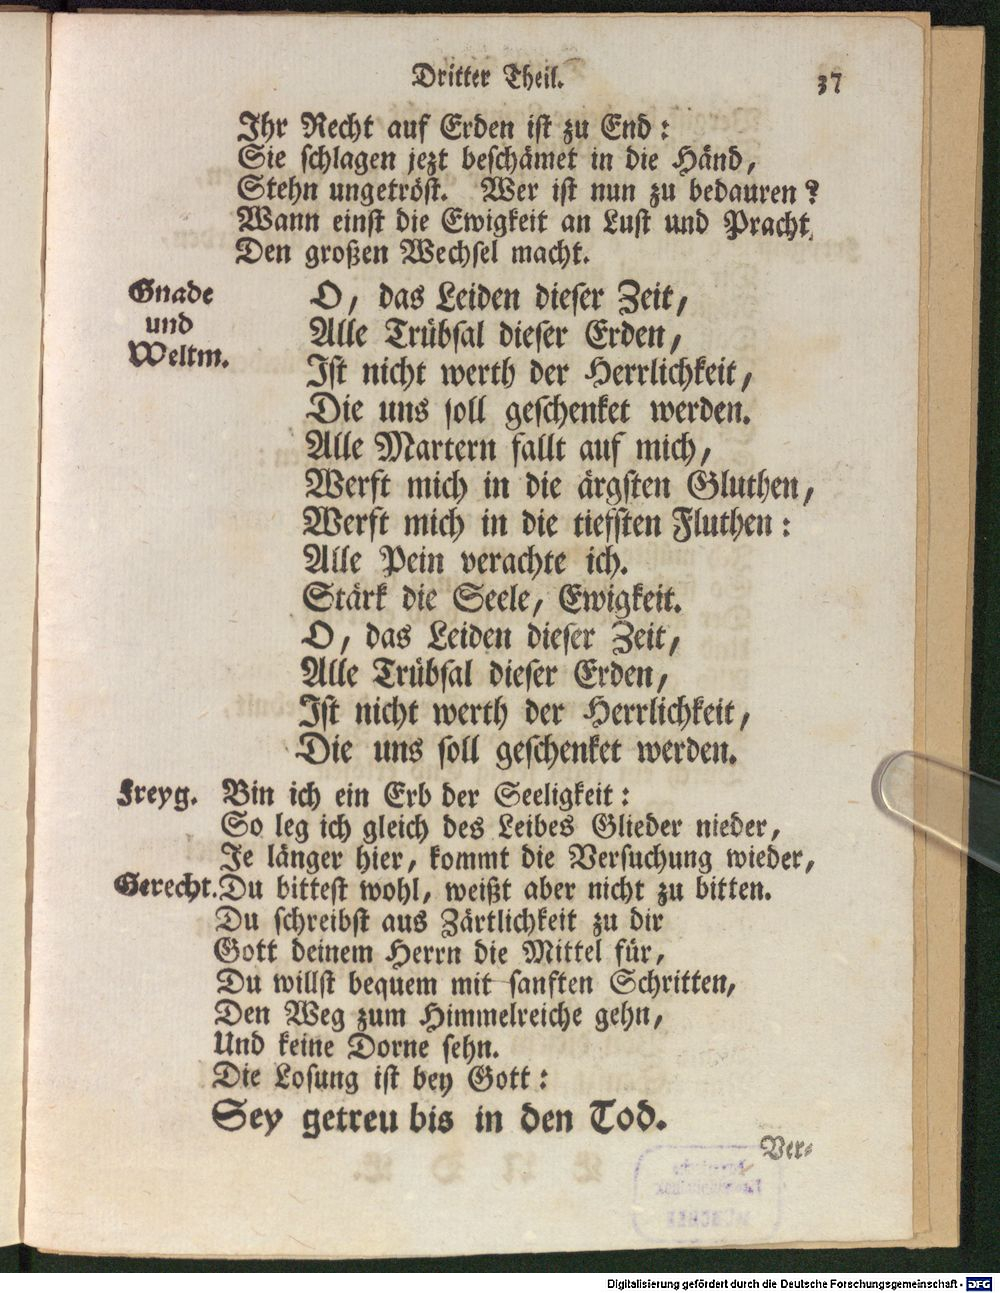 Dritter Theil. 37
Ihr Recht auf Erden ist zu End:
Sie schlagen jezt beschämet in die Händ,
Stehn ungetröst. Wer ist nun zu bedauren?
Wann einst die Ewigkeit an Lust und Pracht,
Den großen Wechsel macht.
Gnade und Weltm. O, das Leiden dieser Zeit,
Alle Trübsal dieser Erden,
Ist nicht werth der Herrlichkeit,
Die uns soll geschenket werden.
Alle Martern fallt auf mich,
Werft mich in die ärgsten Gluthen,
Werft mich in die tiefsten Fluthen:
Alle Pein verachte ich.
Stärk die Seele, Ewigkeit.
O, das Leiden dieser Zeit,
Alle Trübsal dieser Erden,
Ist nicht werth der Herrlichkeit,
Die uns soll geschenket werden.
Freyg. Bin ich ein Erb der Seeligkeit:
So leg ich gleich des Leibes Glieder nieder,
Je länger hier, kommt die Versuchung wieder,
Gerecht. Du bittest wohl, weißt aber nicht zu bitten.
Du schreibst aus Zärtlichkeit zu dir
Gott deinem Herrn die Mittel für,
Du willst bequem mit sanften Schritten,
Den Weg zum Himmelreiche gehn,
Und keine Dorne sehn.
Die Losung ist bey Gott:
Sey getreu bis in den Tod.
Ver-
Digitalisierung gefördert durch die Deutsche Forschungsgemeinschaft - DFG